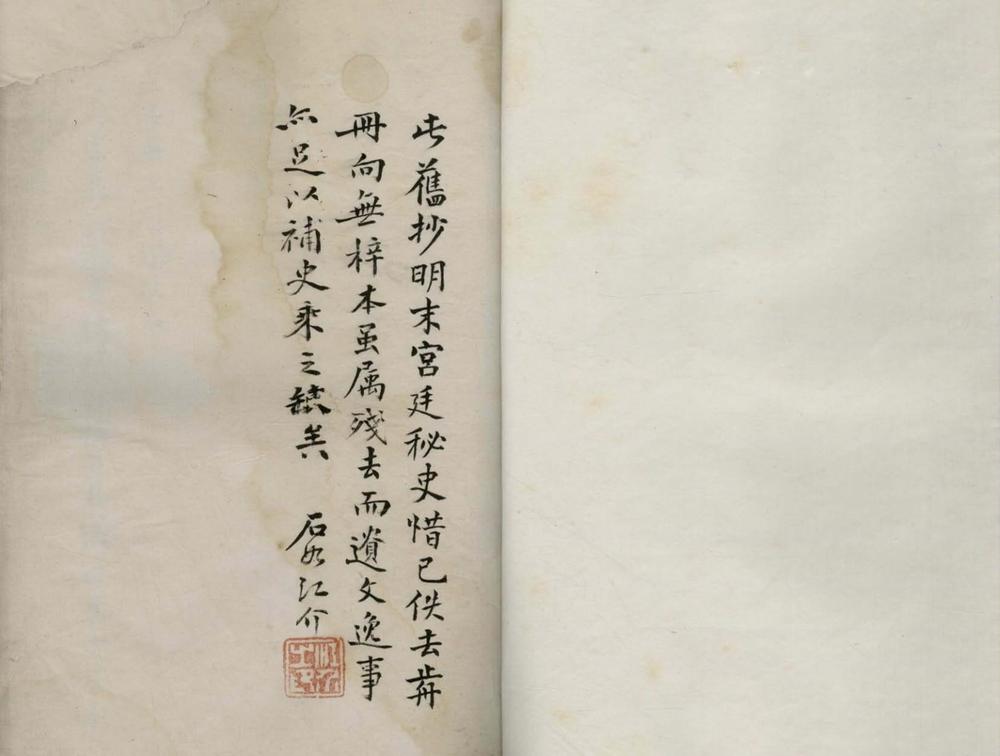 此舊抄明末宮廷秘史惜已佚去歬
冊向無梓本虽属殘去而遺文逸事
亦足以補史乘之缺矣　石如江介